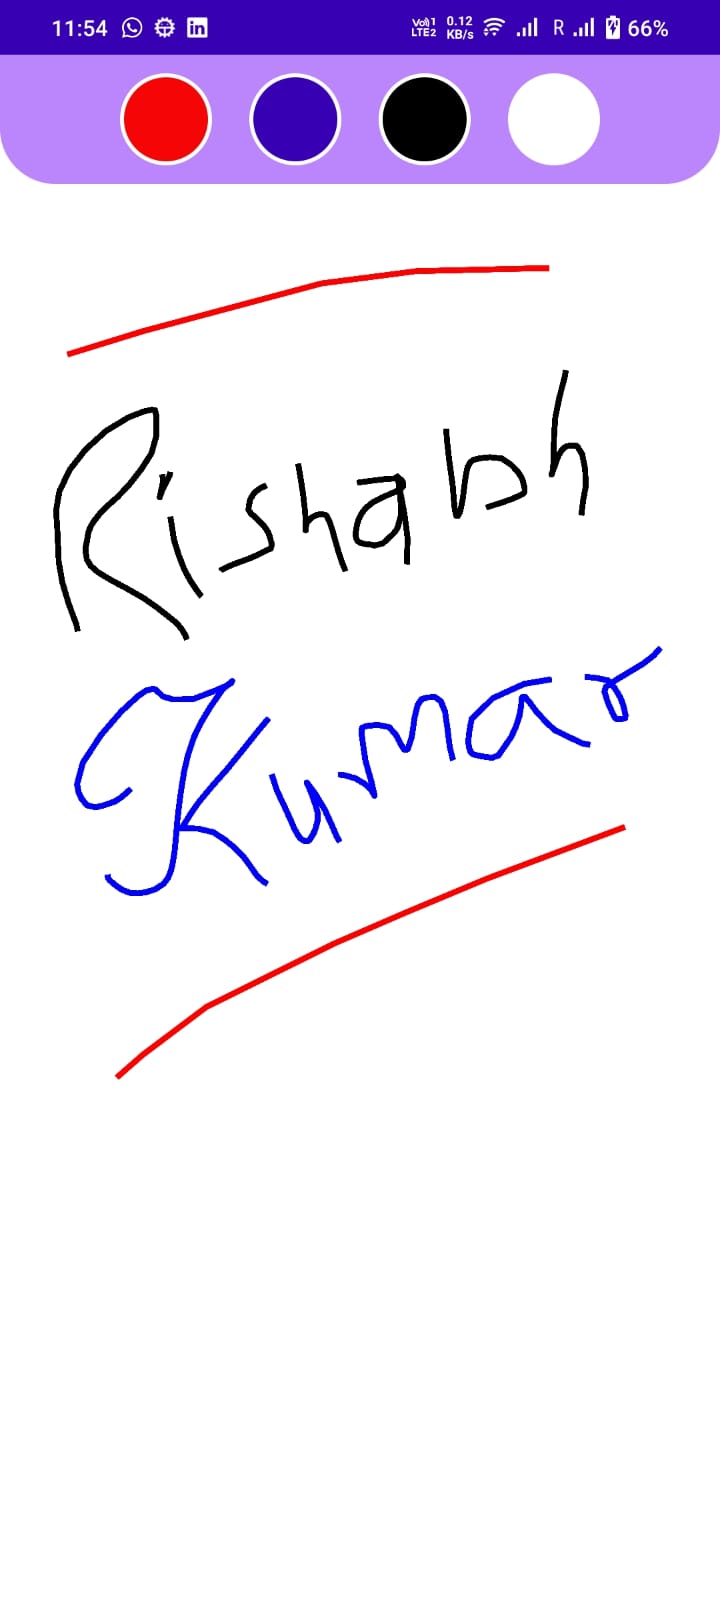 11:54 in Vo)) 1 LTE2 0.12 KB/s R 66%
Rishabh
Kumar